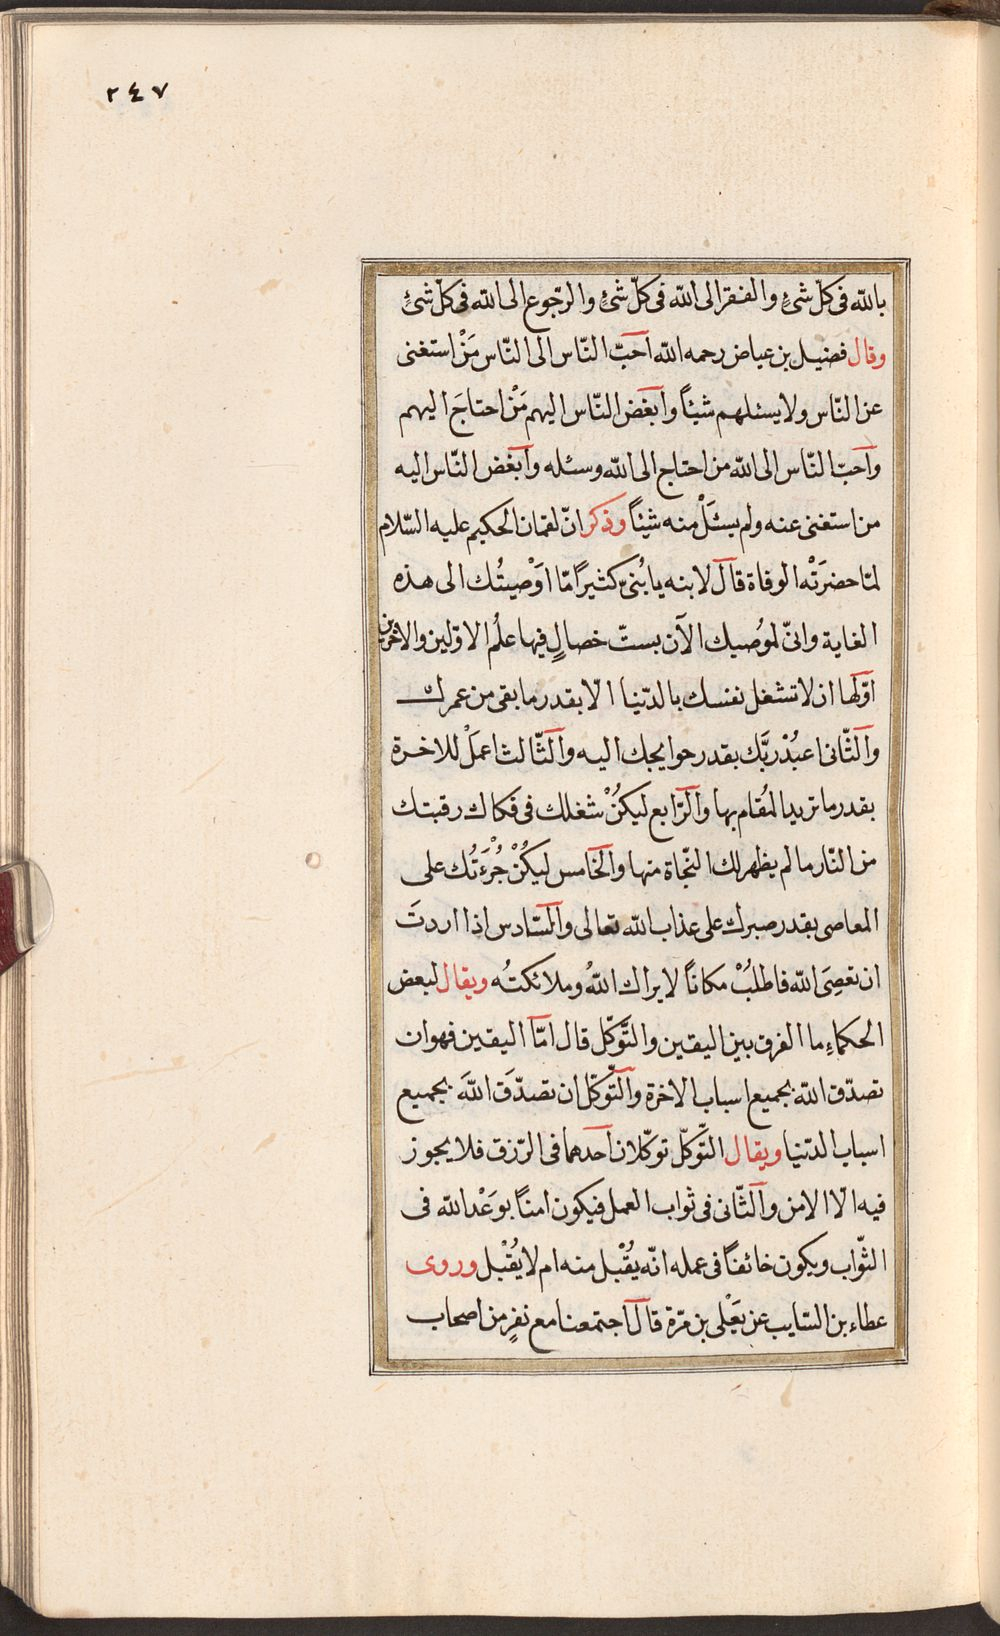 ٢٤٧
بالله فى كلّ شئٍ والفقر الى الله فى كلّ شئٍ والرّجوع الى الله فى كلّ شئٍ
وقال فضيل بن عياض رحمه الله احبّ النّاس الى النّاس مَنْ استغنى
عن النّاس ولا يسئلهم شيئاً وابغض النّاس اليهم مَنْ احتاجَ اليهم
واحبّ النّاس الى الله من احتاج الى الله وسئله وابغض النّاس اليه
من استغنى عنه ولم يسئَلْ منه شيئاً وذكر انّ لقمان الحكيم عليه السّلام
لمّا حضرَتْه الوفاة قال لابنه يا بُنىّ كثيرًا مّا اَوْصيتُك الى هذه
الغاية وانّى لموُصيك الآن بستّ خصالٍ فيها علمُ الاوّلين والاخرين
اوّلها ان لا تشغل نفسك بالدّنيا الّا بقدر ما بقى من عمرك
والثّانى اعبُدْ ربَّك بقدر حوايجك اليه والثّالث اعملْ للاخرة
بقدر ما تريد المُقام بها والرّابع ليكنْ شغلك فى فكاك رقبتك
من النّار ما لم يظهر لك النّجاة منها والخامس ليكُنْ جُرْءَتُك على
المعاصى بقدر صبرك على عذاب الله تعالى والسّادس اذا اردتَ
ان تعصِىَ الله فاطلبُْ مكانًا لا يراك اللهُ وملائكتُه ويقال لبعض
الحكماءِ ما الفرق بين اليقين والتّوكّل قال امّا اليقين فهو ان
تصدّق الله بجميع اسباب الاخرة والتّوكّل ان تصدّقَ اللهَ بجميع
اسباب الدّنيا ويقال التّوكّل توكّلان احدهما فى الرّزق فلا يجوز
فيه الّا الامن والثّانى فى ثواب العمل فيكون امنًا بوَعْد الله فى
الثّواب ويكون خائفًا فى عمله انّه يُقْبل منه ام لا يُقْبل وروى
عطاء بن السّايب عن يَعْلى بن مرّة قال اجتمعنا مع نفرٍ من اصحاب